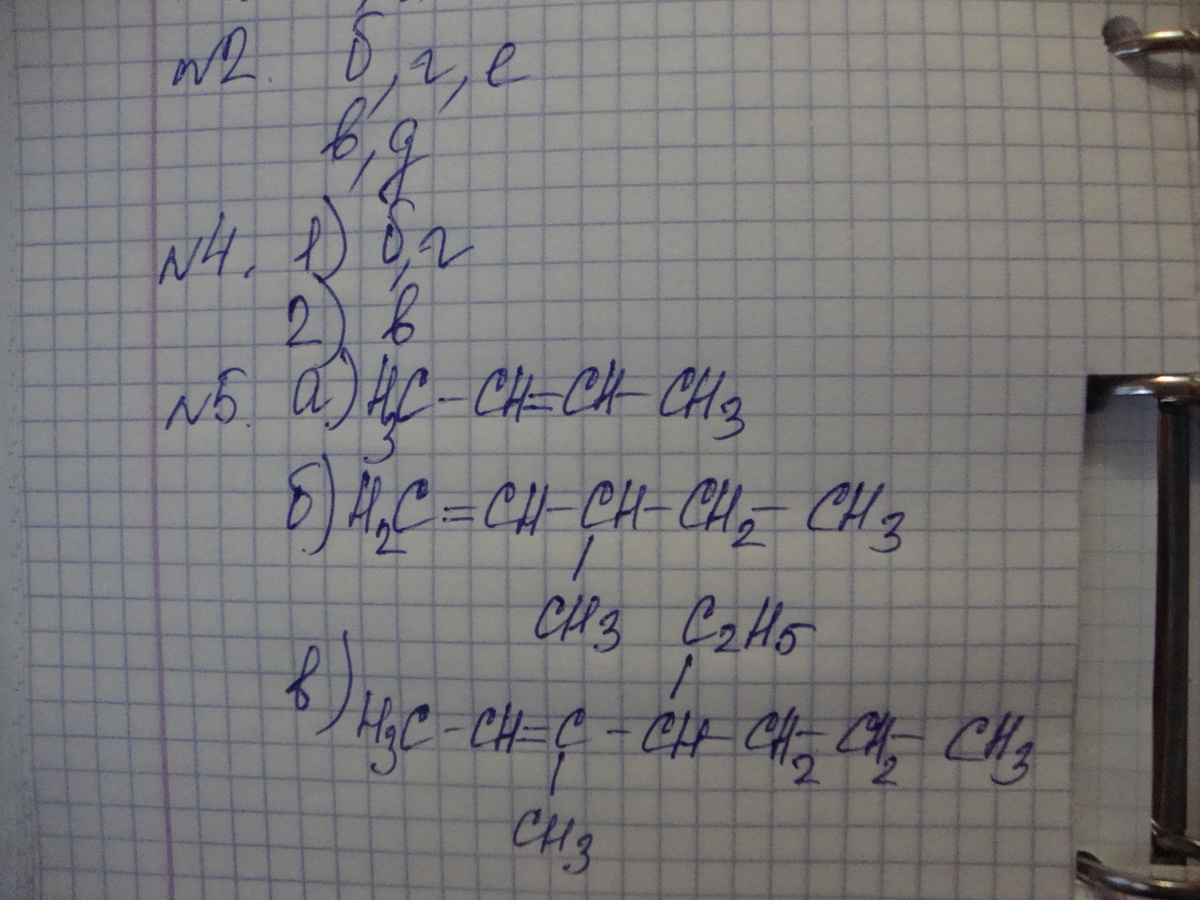 №2. б, г, е
в, д
№4. 1) б, г
2) в
№5. а) H3C - CH = CH - CH3
б) H2C = CH - CH - CH2 - CH3
CH3 C2H5
в) H3C - CH = C - CH - CH2 - CH2 - CH3
CH3